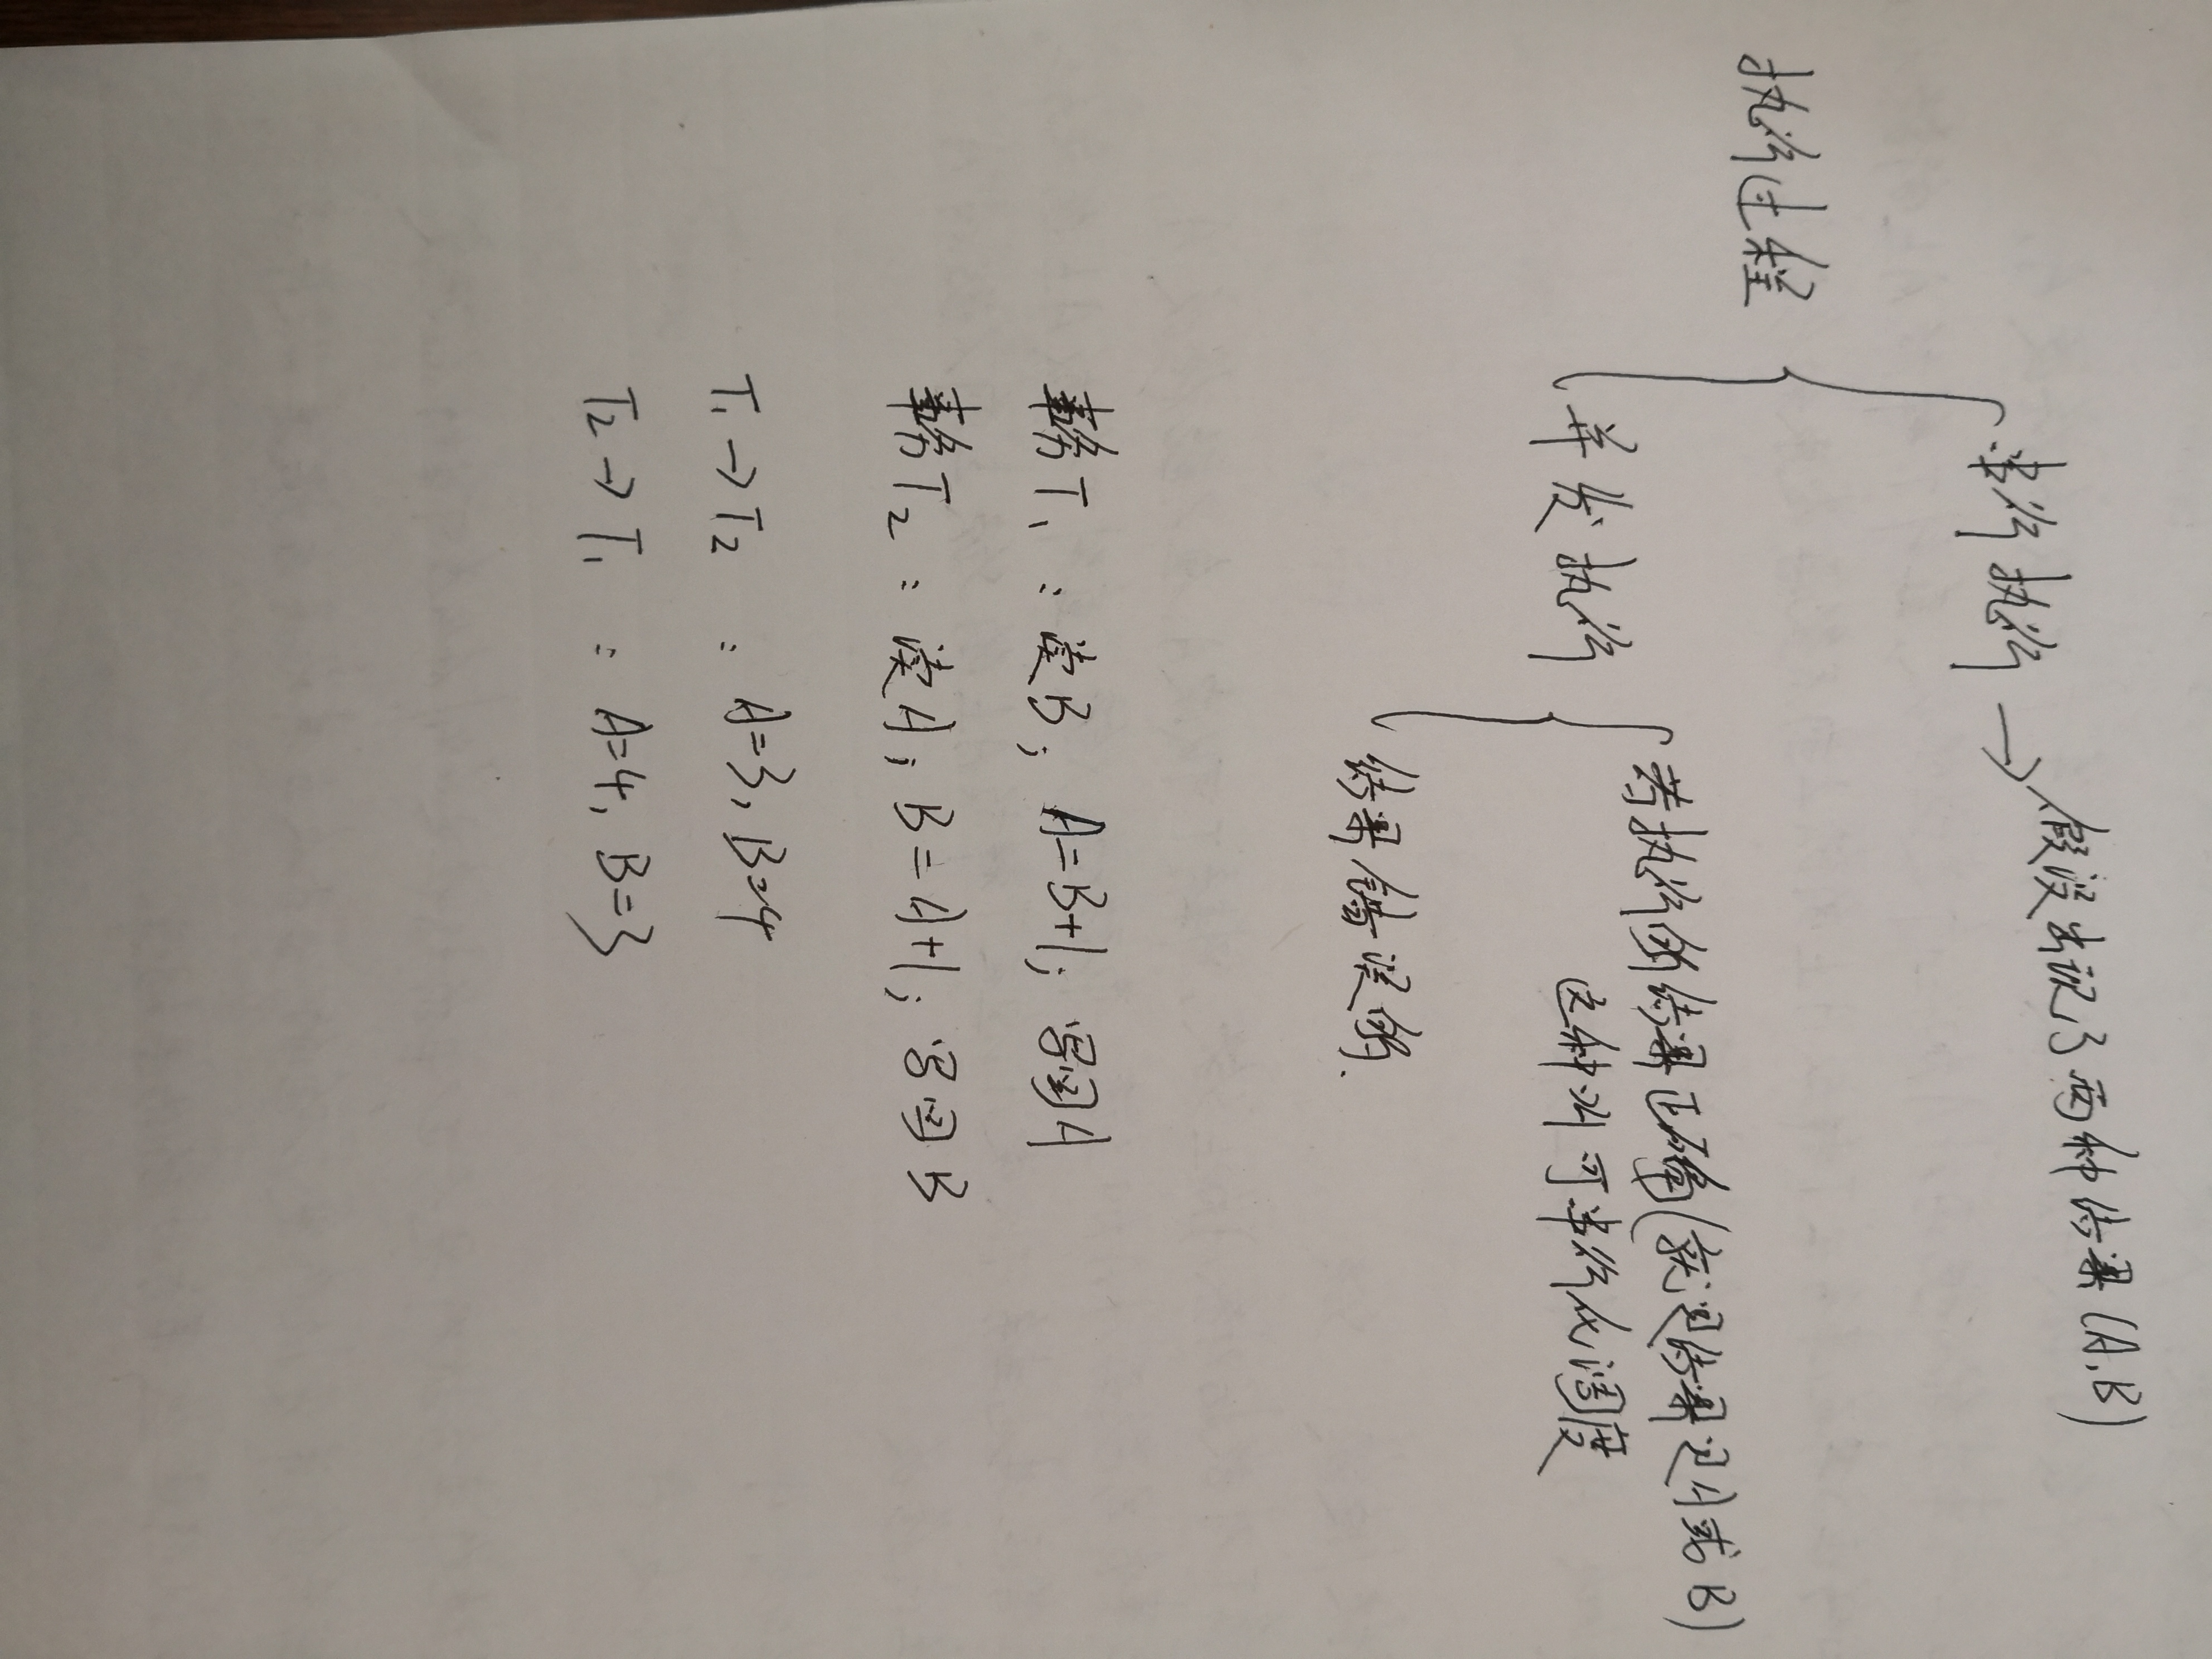 串行执行 → 假设出现了两种结果(A,B)
执行过程
若执行的结果正确(就是结果是A或B)
并发执行
这种叫可串行化调度
结果错误的.
事务T₁ : 读B; A=B+1; 写回A
事务T₂ : 读A; B=A+1; 写回B
T₁→T₂ : A=3, B=4
T₂→T₁ : A=4, B=3